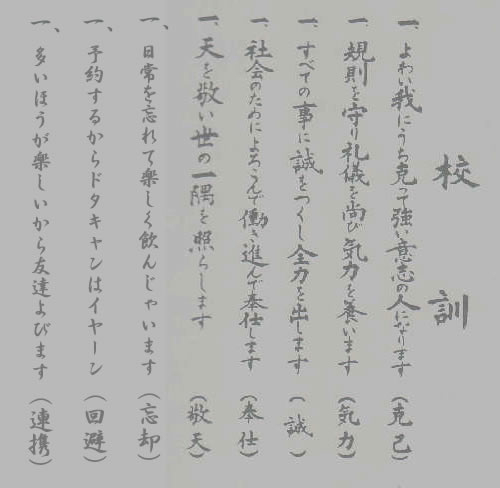 校訓
一、よわい我にうち克って強い意志の人になります（克己）
一、規則を守り礼儀を尚び気力を養います（気力）
一、すべての事に誠をつくし全力を出します（誠）
一、社会のためによろこんで働き進んで奉仕します（奉仕）
一、天を敬い世の一隅を照らします（敬天）
一、日常を忘れて楽しく飲んじゃいます（忘却）
一、予約するからドタキャンはイヤーン（回避）
一、多いほうが楽しいから友達よびます（連携）